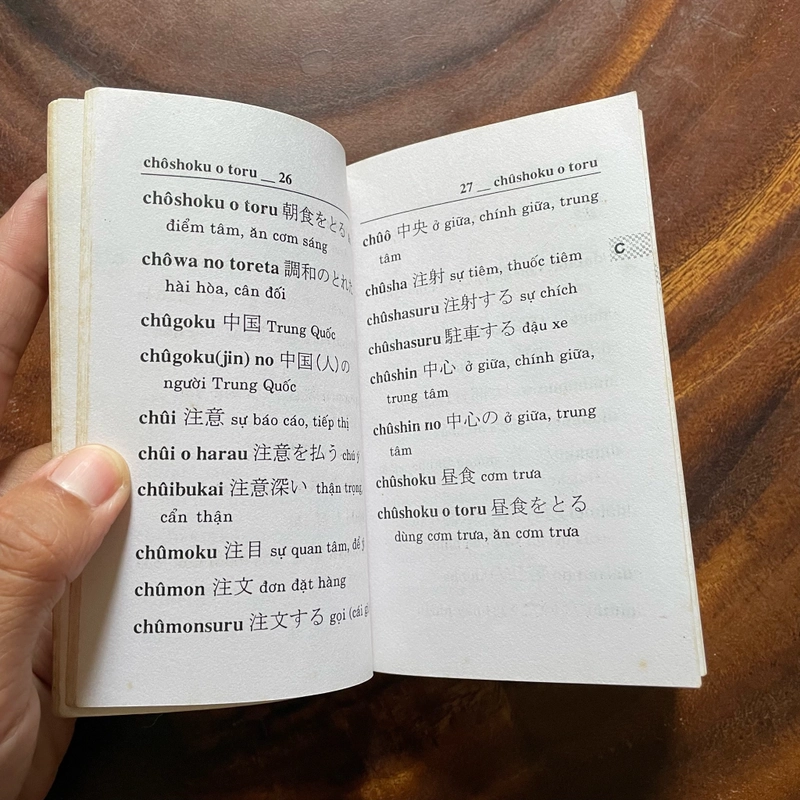 chôshoku o toru __ 26
chôshoku o toru 朝食をとる
điểm tâm, ăn cơm sáng
chôwa no toreta 調和のとれた
hài hòa, cân đối
chûgoku 中国 Trung Quốc
chûgoku(jin) no 中国(人)の
người Trung Quốc
chûi 注意 sự báo cáo, tiếp thị
chûi o harau 注意を払う chú ý
chûibukai 注意深い thận trọng
cẩn thận
chûmoku 注目 sự quan tâm, để ý
chûmon 注文 đơn đặt hàng
chûmonsuru 注文する gọi (cái
27 __ chûshoku o toru
chûô 中央 ở giữa, chính giữa, trung
tâm
C
chûsha 注射 sự tiêm, thuốc tiêm
chûshasuru 注射する sự chích
chûshasuru 駐車する đậu xe
chûshin 中心 ở giữa, chính giữa,
trung tâm
chûshin no 中心の ở giữa, trung
tâm
chûshoku 昼食 cơm trưa
chûshoku o toru 昼食をとる
dùng cơm trưa, ăn cơm trưa